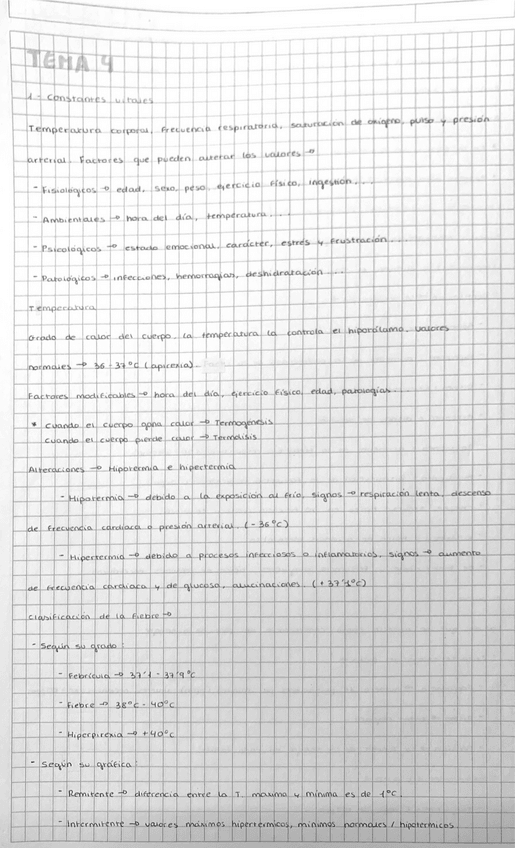 TEMA 4
1- Constantes vitales
Temperatura corporal, frecuencia respiratoria, saturación de oxígeno, pulso y presión
arterial. Factores que pueden alterar los valores →
- Fisiológicos → edad, sexo, peso, ejercicio físico, ingestión...
- Ambientales → hora del día, temperatura....
- Psicológicos → estado emocional, carácter, estrés y frustración...
- Patológicos → infecciones, hemorragias, deshidratación...
Temperatura
Grado de calor del cuerpo, la temperatura la controla el hipotálamo, valores
normales → 36-37°C (apirexia).
Factores modificables → hora del día, ejercicio físico, edad, patologías...
* Cuando el cuerpo gana calor → Termogénesis
Cuando el cuerpo pierde calor → Termólisis
Alteraciones → Hipotermia e hipertermia
- Hipotermia → debido a la exposición al frío, signos → respiración lenta, descenso
de frecuencia cardiaca o presión arterial. (-36°C)
- Hipertermia → debido a procesos infecciosos o inflamatorios, signos → aumento
de frecuencia cardiaca y de glucosa, alucinaciones. (+37'1°C)
Clasificación de la fiebre →
- Según su grado:
- Febrícula → 37'1 - 37'9°C
- Fiebre → 38°C - 40°C
- Hiperpirexia → +40°C
- Según su gráfica:
- Remitente → diferencia entre la T. máxima y mínima es de 1°C.
- Intermitente → valores máximos hipertérmicos, mínimos normales / hipotérmicos